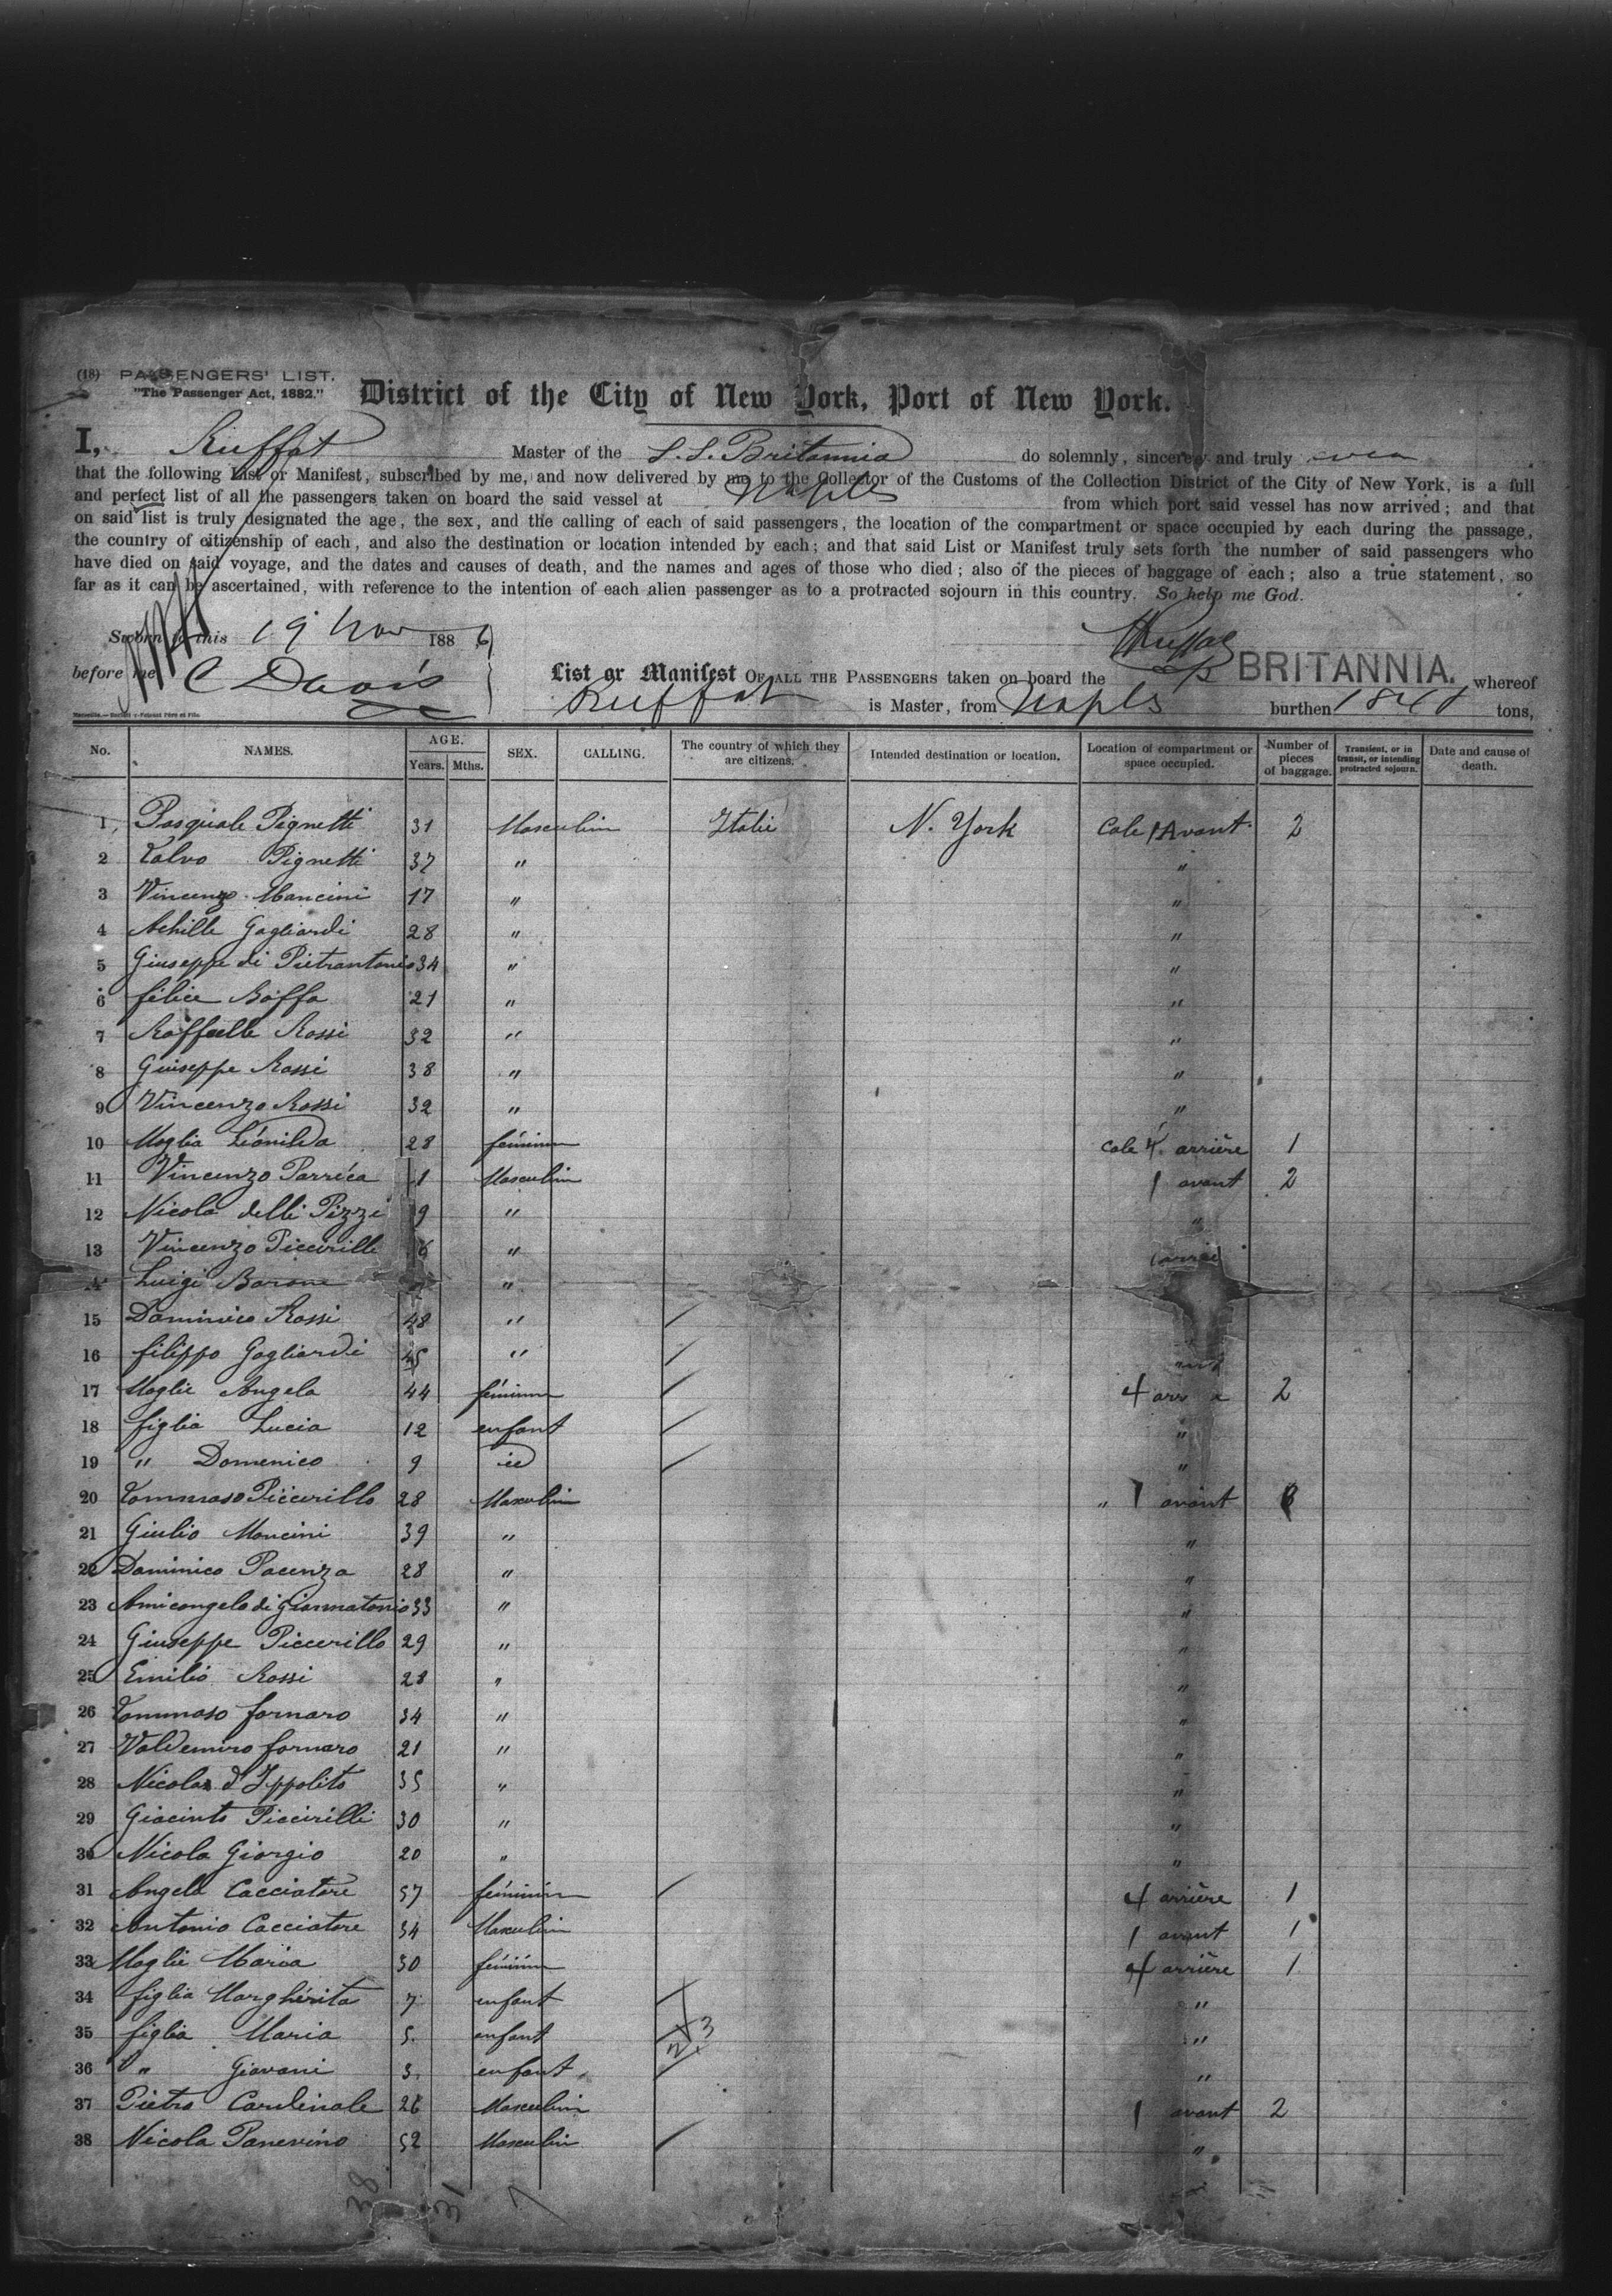 (18) PASSENGERS' LIST.
"The Passenger Act, 1882."
District of the City of New York, Port of New York.
I, Ruffat Master of the S.S. Britannia do solemnly, sincerely and truly
that the following List or Manifest, subscribed by me, and now delivered by me to the Collector of the Customs of the Collection District of the City of New York, is a full
and perfect list of all the passengers taken on board the said vessel at Naples from which port said vessel has now arrived; and that
on said list is truly designated the age, the sex, and the calling of each of said passengers, the location of the compartment or space occupied by each during the passage,
the country of citizenship of each, and also the destination or location intended by each; and that said List or Manifest truly sets forth the number of said passengers who
have died on said voyage, and the dates and causes of death, and the names and ages of those who died; also of the pieces of baggage of each; also a true statement, so
far as it can be ascertained, with reference to the intention of each alien passenger as to a protracted sojourn in this country. So help me God.
Sworn to this 19 Nov 1886
Ruffat
before me C Davis
List or Manifest OF ALL THE PASSENGERS taken on board the BRITANNIA. whereof
Ruffat is Master, from Naples burthen tons,
No. NAMES. AGE. Years. Mths. SEX. CALLING. The country of which they are citizens. Intended destination or location. Location of compartment or space occupied. Number of pieces of baggage. Transient, or in transit, or intending protracted sojourn. Date and cause of death.
1 Pasquale Pignetti 31 Masculin Italie N. York Cale 1 Avant 2
2 Pignetti 37 " "
3 Vincenzo Mancini 17 " "
4 Achille Gagliardi 28 " "
5 Giuseppe di Pietrantonio 34 " "
6 felice Boffa 21 " "
7 Raffaelle Rossi 32 " "
8 Giuseppe Rossi 38 " "
9 Vincenzo Rossi 32 " "
10 Moglia Léonilda 28 féminin cale 4 arrière 1
11 Vincenzo Parrica 1 Masculin 1 avant 2
12 Nicola delli Pizzi 9 " "
13 Vincenzo Piccirilli 6 "
Luigi Barone "
15 Dominico Rossi 48 "
16 filippo Gagliardi 45 "
17 Moglie Angela 44 féminin 4 2
18 figlia Lucia 12 enfant "
19 " Domenico 9 id "
20 Tommaso Piccirillo 28 Masculin " 1 avant
21 Giulio Mancini 39 " "
22 Dominico Pacenza 28 " "
23 Amicangelo di Giannatonio 33 " "
24 Giuseppe Piccerillo 29 " "
25 Emilio Rossi 28 " "
26 Tommaso fornaro 34 " "
27 Valdemiro fornaro 21 " "
28 Nicola d'Ippolito 35 " "
29 Giacinto Piccirilli 30 " "
30 Nicola Giorgio 20 " "
31 Angela Cacciatore 57 féminin 4 arrière 1
32 Antonio Cacciatore 34 Masculin 1 avant 1
33 Moglie Maria 30 féminin 4 arrière 1
34 figlia Marghérita 7 enfant "
35 figlia Maria 5 enfant "
36 " Giovani 3 enfant "
37 Pietro Cardinale 26 Masculin 1 avant 2
38 Nicola Panevino 52 Masculin "
38 31 7